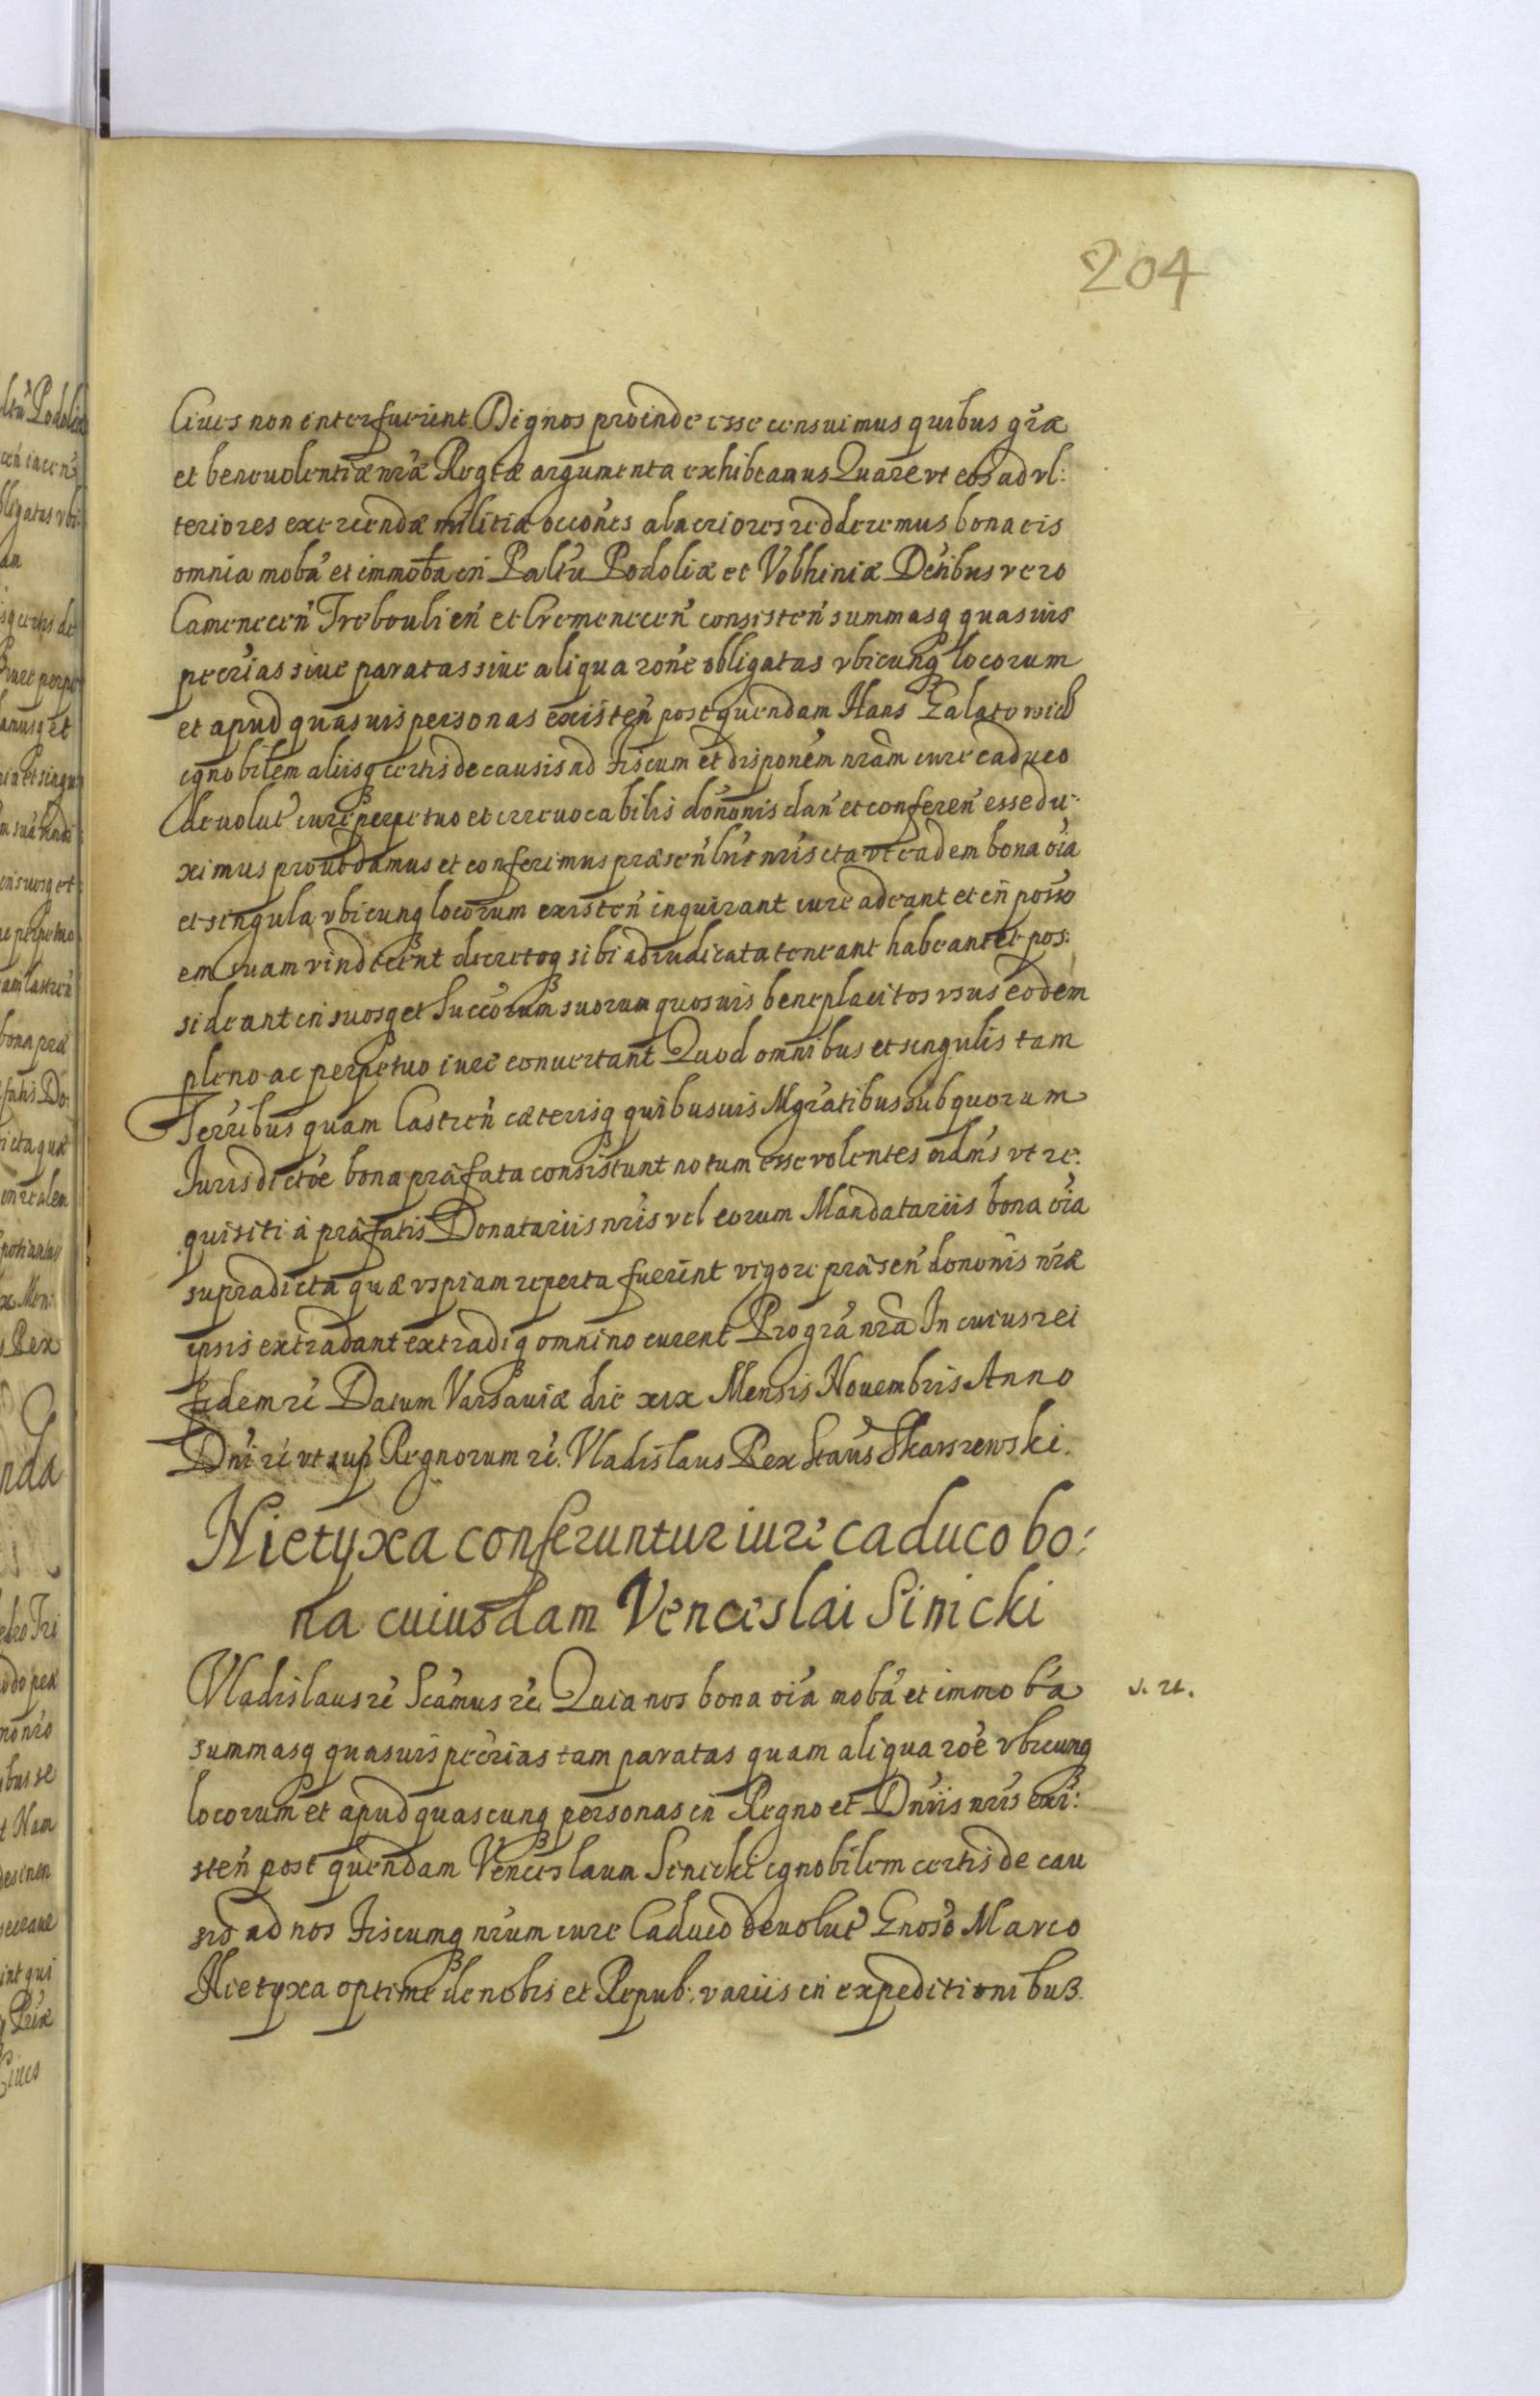 204
Ciues non interfuerint. Dignos proinde esse censuimus quibus gr̃æ
et beneuolentiæ nr̃æ Regiæ argumenta exhibeamus Quare vt eos ad vl:
teriores exercendæ militiæ occõnes alacriores redderemus bona eis
omnia mob̃a et immob̃a in Palt̃u Podoliæ et Volhiniæ Dct̃ibus vero
Camenecen̄ Trebouli en̄ et Cremenecen̄ consisten̄ summasq quasuis
pec̃rias siue paratas siue aliqua rõne obligatas vbicunq locorum
et apud quasuis personas existen̄ post quendam Hans Zalatowicz
ignobilem aliisq certis de causis ad Fiscum et disponẽm nr̃am iure caduco
deuolut̃ iure perpetuo et irreuocabilis donõnis dan̄ et conferen̄ esse du:
ximus prout damus et conferimus præsen̄ lr̃is nr̃is ita vt eadem bona oĩa
et singula vbicunq locorum existen̄ inquirant iure adeant et in̄ posso
em suam vindicent decretoq sibi adiudicata teneant habeant et pos:
sideant in suosq et Succõrum suorum quosuis beneplacitos vsus eodem
pleno ac perpetuo iure conuertant Quod omnibus et singulis tam
Terr̃ibus quam Castren̄ cæterisq quibusuis Mgr̃atibus sub quorum
Jurisdictõe bona præfata consistunt notum esse volentes mdm̃s vt re:
quisiti à præfatis Donatariis nr̃is vel eorum Mandatariis bona oĩa
supradicta quæ vspiam reperta fuerint vigore præsen̄ donõnis nr̃æ
ipsis extradant extradiq omnino curent Pro gr̃a nr̃a In cuius rei
fidem rẽ Datum Varsauiæ die xix Mensis Nouembris Anno
Dn̄i rẽ vt sup̃ Regnorum rẽ. Vladislaus Rex Stãus Skarszewski.
Nietyxa conferuntur iure caduco bo:
na cuiusdam Venceslai Sinicki
Vladislaus rẽ Scãmus rẽ Quia nos bona oĩa mob̃a et immob̃a
v. rt.
summasq quasuis pec̃rias tam paratas quam aliqua rõe vbicunq
locorum et apud quascunq personas in Regno et Dn̄iis nr̃is exi:
sten̄ post quendam Venceslaum Sinicki ignobilem certis de cau
sis ad nos Fiscumq nr̃um iure Caduco deuolut̃ Gnoso Marco
Nietyxa optime de nobis et Repub: variis in expeditionibus.